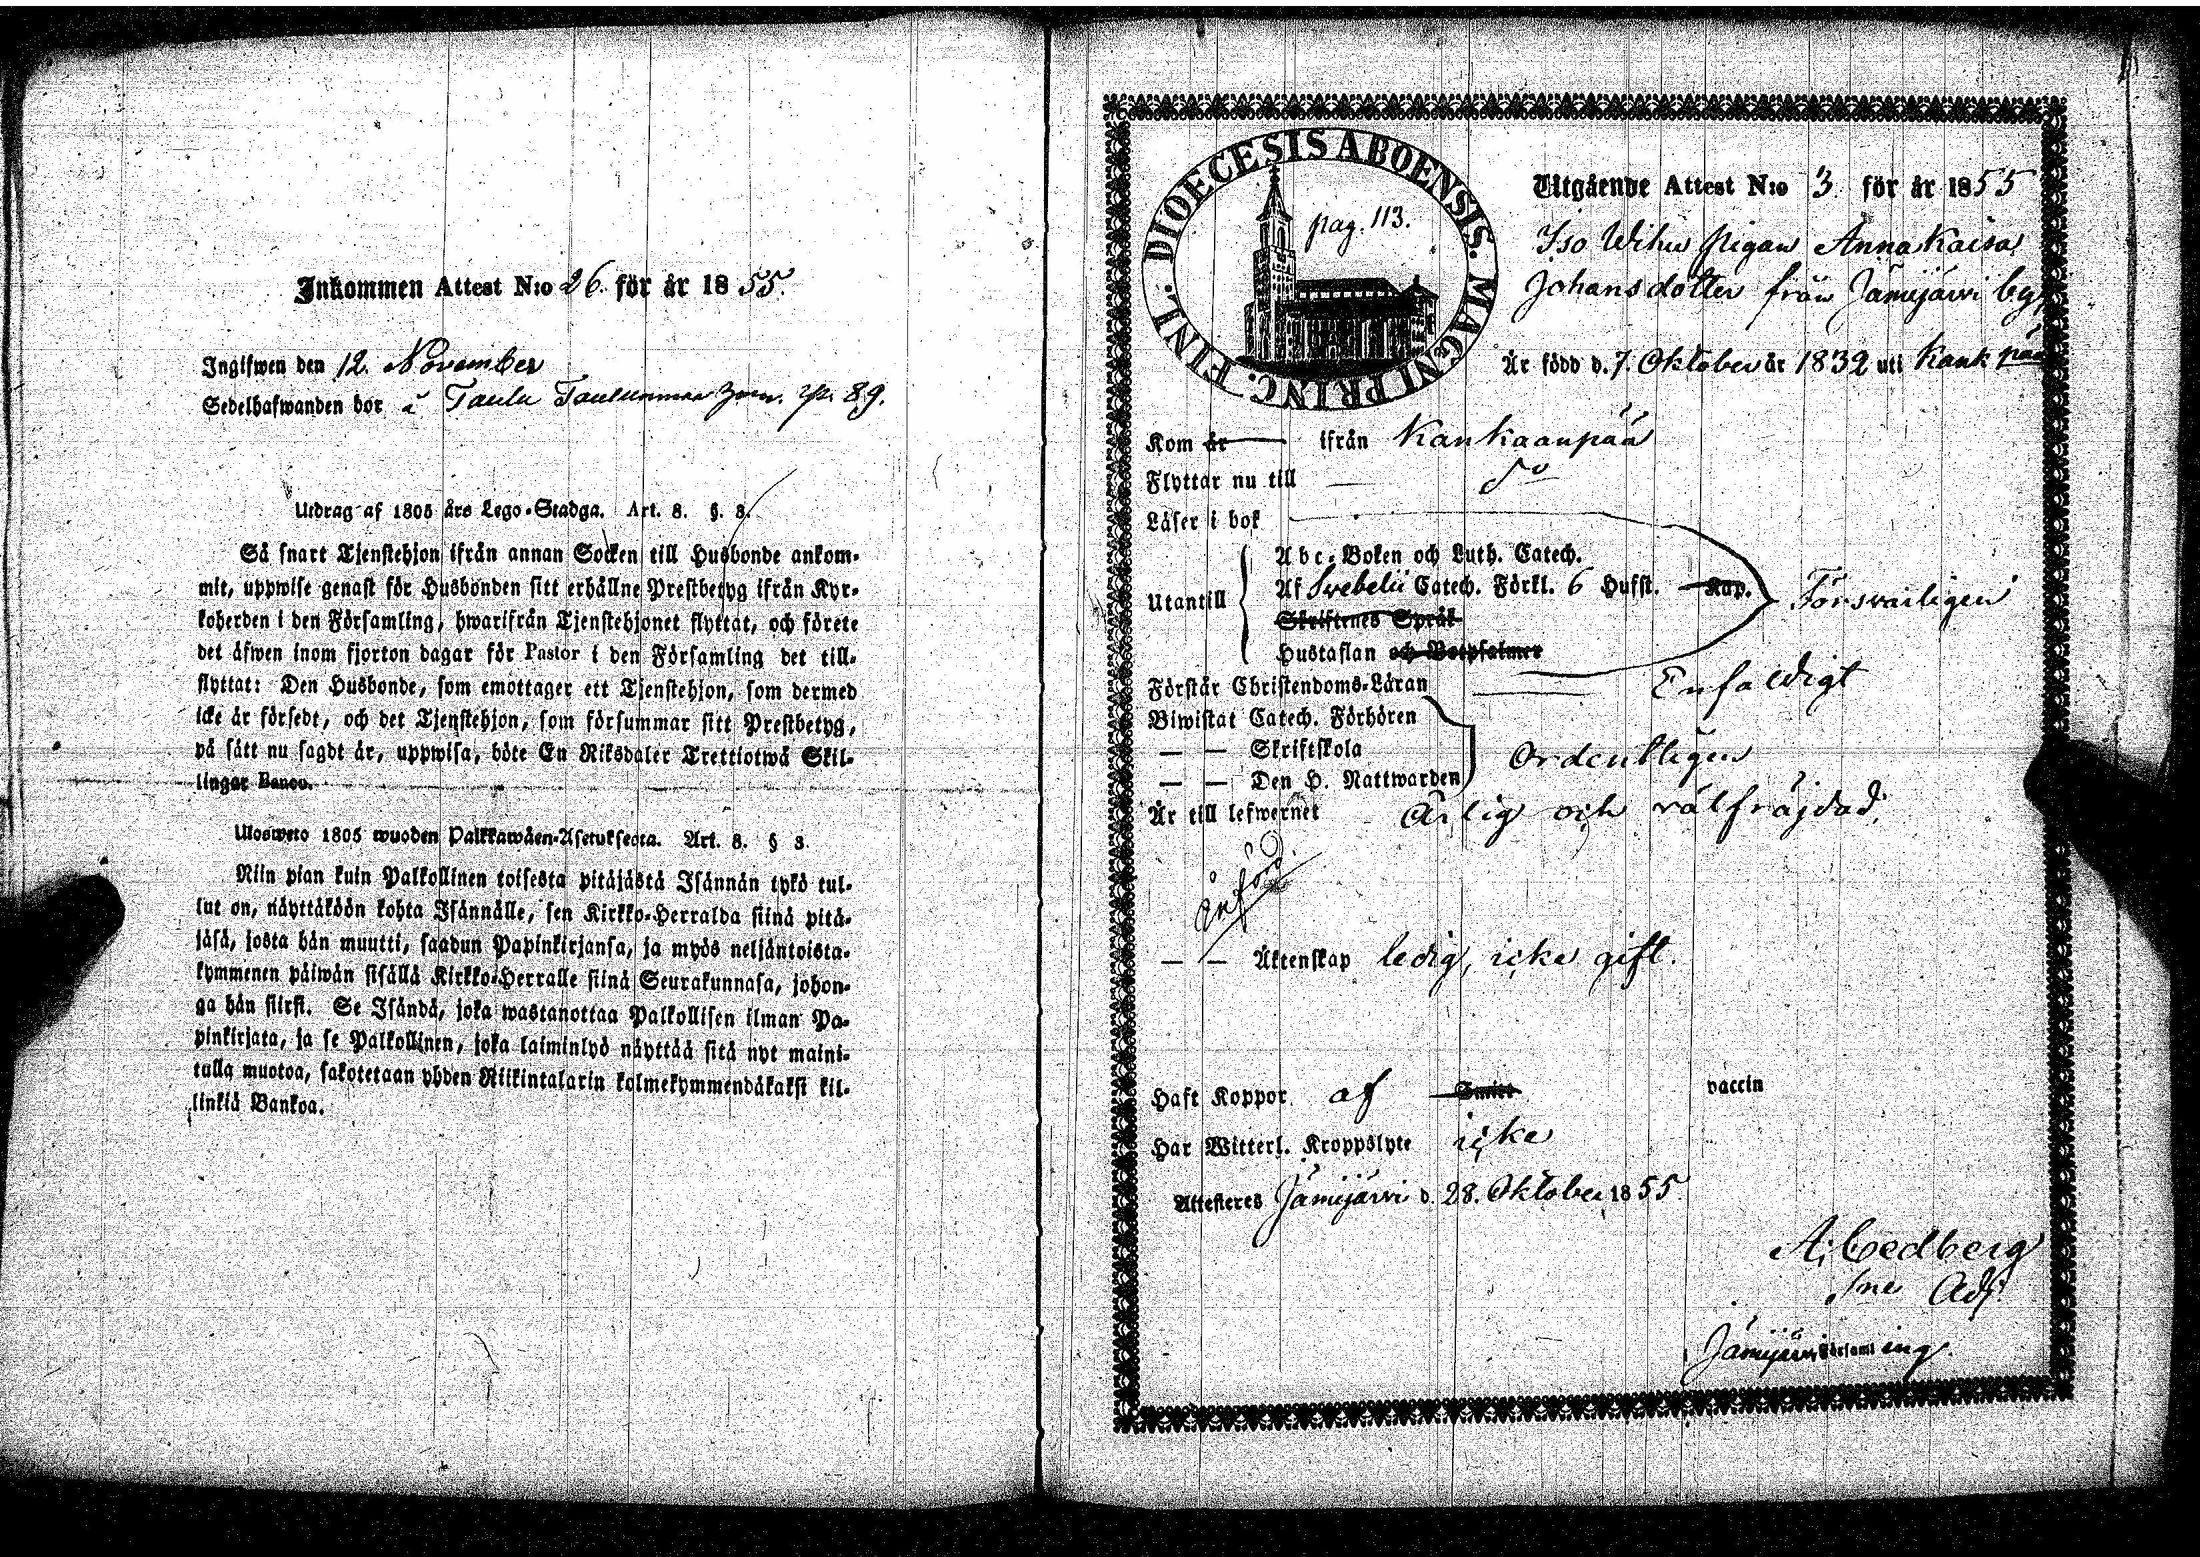 Inkommen Attest N:o 26 för år 1855.
Ingifwen den 12. November
Sedelhafwanden bor å Taulu 89.
Utdrag af 1805 års Lego-Stadga. Art. 8. §. 3.
Så snart Tjenstehjon ifrån annan Socken till Husbonde ankom-
mit, uppwise genast för Husbonden sitt erhållne Prestbetyg ifrån Kyr-
koherden i den Församling, hwarifrån Tjenstehjonet flyttat, och förete
det äfwen inom fjorton dagar för Pastor i den Församling det till-
flyttat: Den Husbonde, som emottager ett Tjenstehjon, som dermed
icke är försedt, och det Tjenstehjon, som försummar sitt Prestbetyg,
på sätt nu sagdt är, uppwisa, böte En Riksdaler Trettiotwå Skil-
lingar Banco.
Ulosweto 1805 wuoden Palkkawäen-Asetuksesta. Art. 8. § 3.
Niin pian kuin Palkollinen toisesta pitäjästä Isännän tykö tul-
lut on, näyttäköön kohta Isännälle, sen Kirkko-Herralda siinä pitä-
jäsä, josta hän muutti, saadun Papinkirjansa, ja myös neljäntoista-
kymmenen päiwän sisällä Kirkko-Herralle siinä Seurakunnasa, johon-
ga hän siirsi. Se Isändä, joka wastanottaa Palkollisen ilman Pa-
pinkirjata, ja se Palkollinen, joka laiminlyö näyttää sitä nyt maini-
tulla muotoa, sakotetaan yhden Riikintalarin kolmekymmendäkaksi kil-
linkiä Bankoa.
DIOECESIS ABOENSIS. MAGNI PRINC. FINL.
pag. 113.
Utgående Attest N:o 3 för år 1855
Iso Wihu pigan Anna Kaisa
Johansdotter från Jämijärvi by
Är född d. 7. Oktober år 1832 uti Kankpää
Kom år ifrån Kankaanpää
Flyttar nu till do
Läser i bok
Utantill
Abc-Boken och Luth. Catech.
Af Svebelii Catech. Förkl. 6 Hufst. Kap.
Skriftenes Språk
Hustaflan och Botpsalmer
Försvarligen
Förstår Christendoms-Läran Enfaldigt
Biwistat Catech. Förhören
— — Skriftskola Ordentligen
— — Den H. Nattwarden
Är till lefwernet Ärlig och välfräjdad.
Införd.
— — Äktenskap ledig, icke gift.
Haft Koppor af Smitt vaccin
Har Witterl. Kroppslyte icke
Attesteres Jämijärvi d. 28. Oktober 1855
A. Cedberg
Adj.
Jämijärvi Församling.